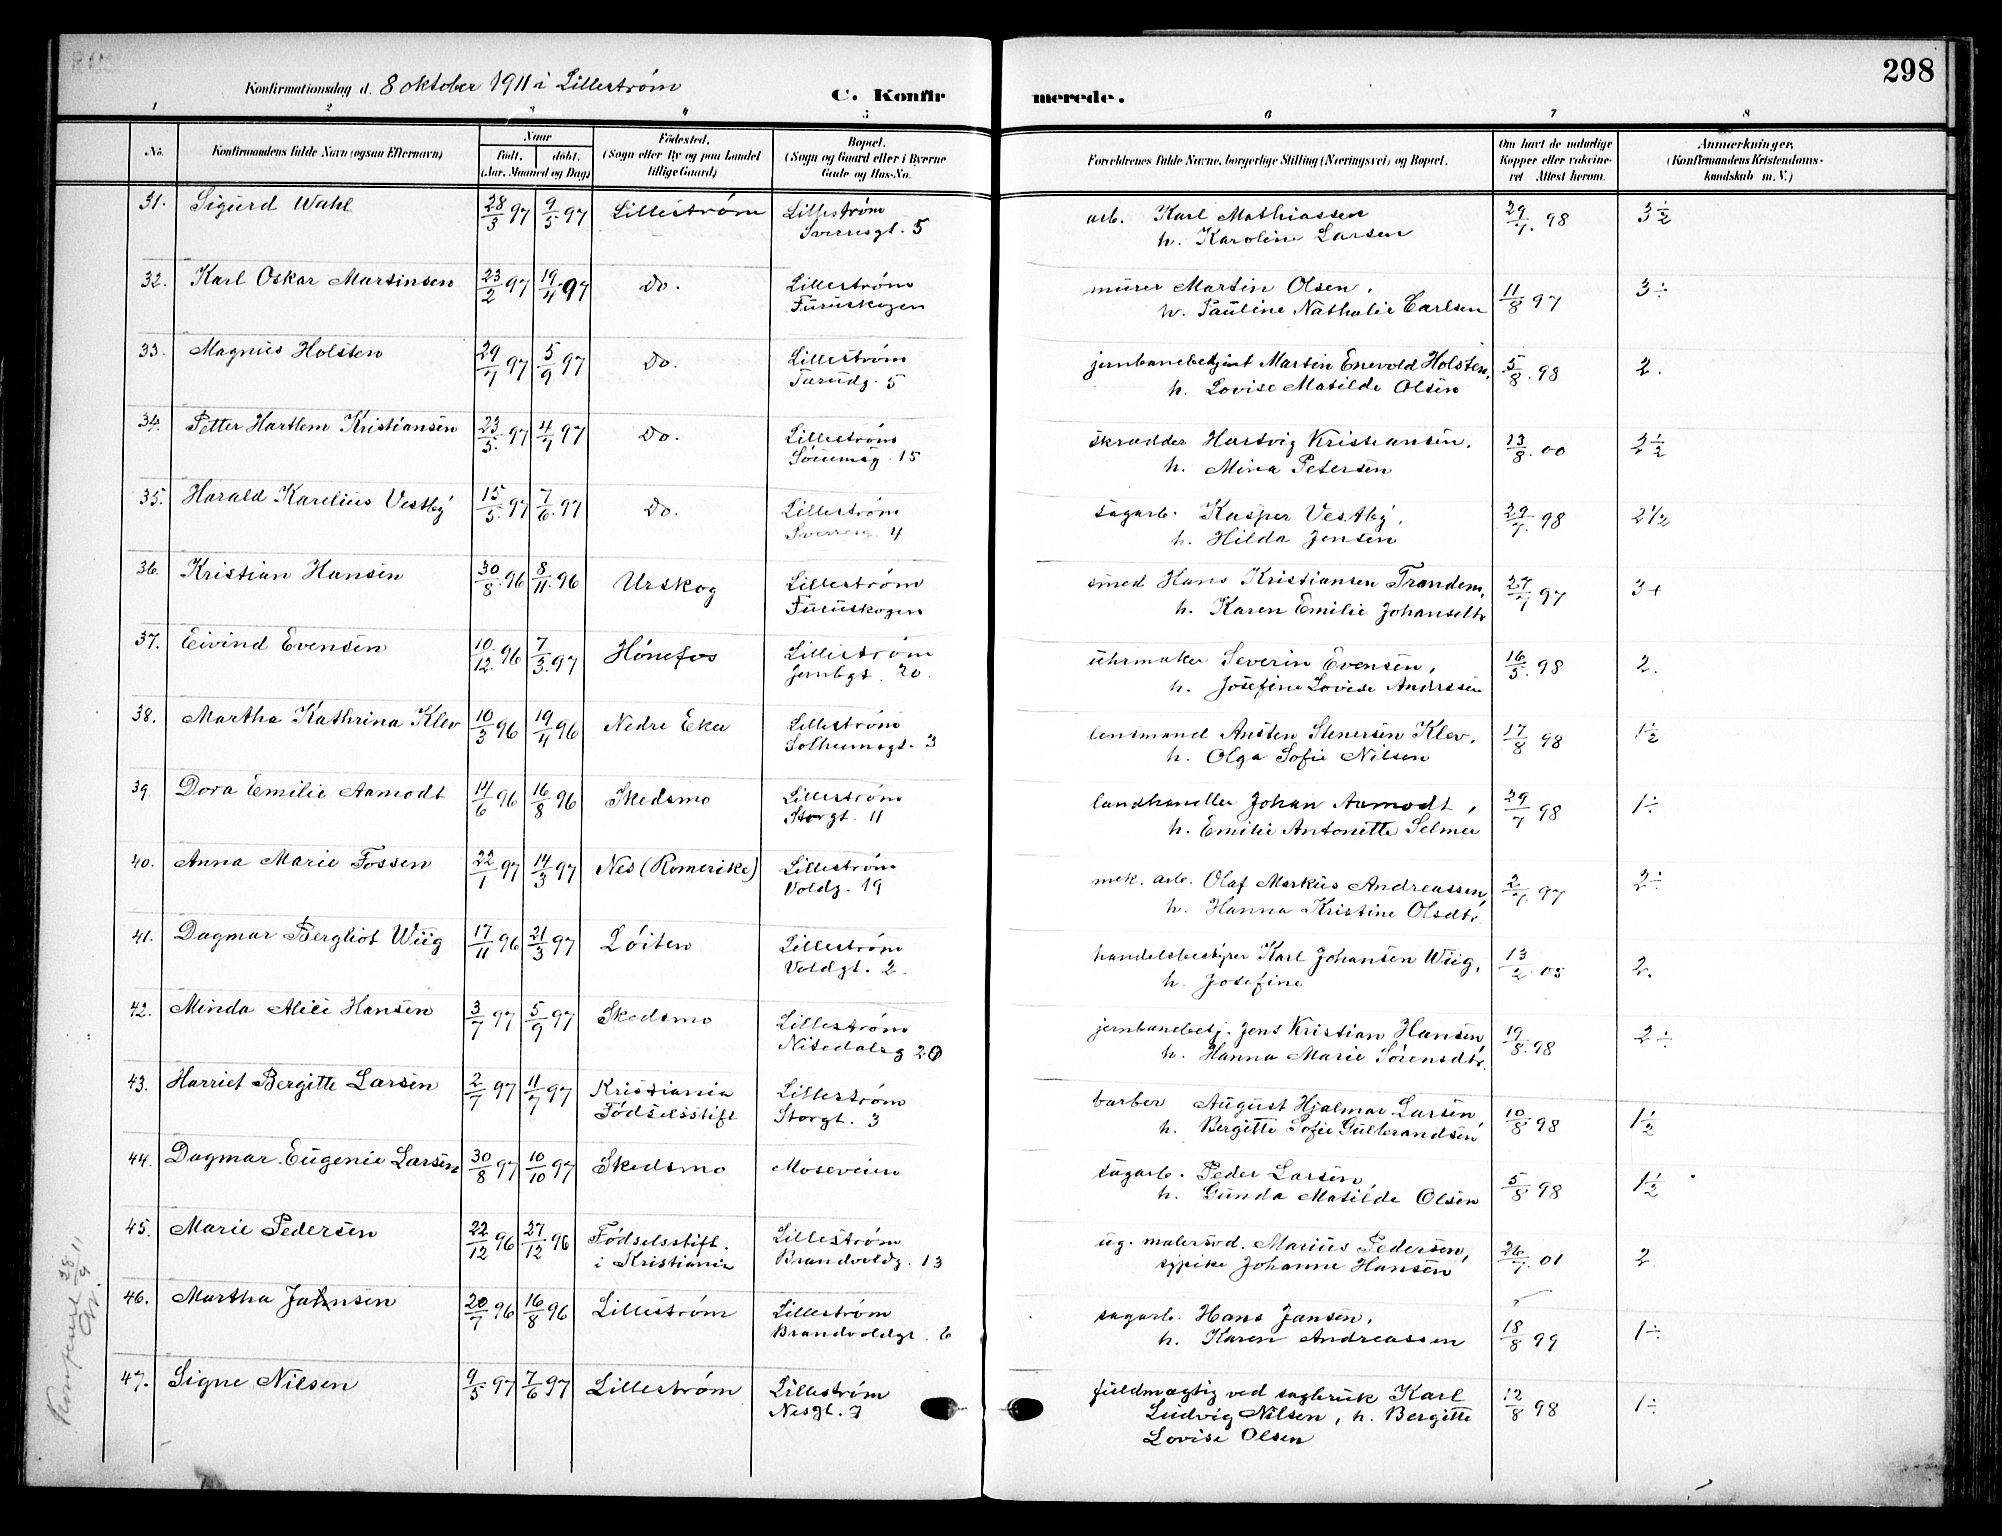 298
Konfirmationsdag d. 8 oktober 1911 i Lillestrøm
C. Konfir merede.
1 2 3 4 5 6 7 8
No. Konfirmandens fulde Navn (ogsaa Efternavn) Naar født. døbt. (Aar, Maaned og Dag) Fødested. (Sogn eller By og paa Landet tillige Gaard) Bopæl. (Sogn og Gaard eller i Byerne Gade og Hus-No. Forældrenes fulde Navne, borgerlige Stilling (Næringsvei) og Bopæl. Om havt de naturlige Kopper eller vakcineret Attest herom. Anmerkninger, (Konfirmandens Kristendomskundskab m. V.)
31. Sigurd Wahl 28/3 97 9/5 97 Lillestrøm Lillestrøm arb. Karl Mathiassen 29/7. 98 3 1/2
Sverresgt. 5 h. Karoline Larsen
32. Karl Oskar Martinsen 23/2 97 19/4 97 Do. Lillestrøm murer Martin Olsen, 11/8 97 3 ÷
Furuskogen h. Pauline Nathalie Carlsen
33. Magnus Holsten 29/7 97 5/9 97 Do. Lillestrøm jernbanebetjent Martin Enevold Holsten, 5/8. 98 2.
Furudg. 5 h. Lovise Matilde Olsen
34. Petter Hartlem Kristiansen 23/5. 97 4/7 97 Do. Lillestrøm skrædder Hartvig Kristiansen. 13/8. 00 2 1/2
Sørumsg. 15 h. Mina Petersen
35. Harald Karelius Vestby 15/5. 97 7/6. 97 Do. Lillestrøm sagarb. Kasper Vestby, 29/7. 98 2 1/2
Sverresg. 4 h. Hilda Jensen
36. Kristian Hansen 30/8. 96 8/11. 96 Urskog Lillestrøm smed Hans Kristiansen Trandem, 27/7 97 3 +
Furuskogen h. Karen Emilie Johansdtr
37. Eivind Evensen 10/12. 96 7/3. 97 Hønefos Lillestrøm uhrmaker Severin Evensen, 16/5. 98 2.
Jernbgt. 20. h. Josefine Lovise Andrsen
38. Martha Kathrina Klev 10/3 96 19/4 96 Nedre Eker Lillestrøm lensmand Austen Stenersen Klev, 17/8 98 1 1/2
Solheimsgt. 3 h. Olga Sofie Nilsen
39. Dora Emilie Aamodt 14/6 96 16/8 96 Skedsmo Lillestrøm landhandler Johan Aamodt, 29/7 98 1 ÷
Storgt. 11 h. Emilie Antonette Selmer
40. Anna Marie Fossen 22/1 97 14/3 97 Nes (Romerike) Lillestrøm mek. arb. Olaf Markus Andreassen, 2/7. 97 2 ÷
Voldg. 19 h. Hanna Kristine Olsdtr.
41. Dagmar Bergliot Wiig 17/11 96 21/3 97 Løiten Lillestrøm handelsbestyrer Karl Johansen Wiig, 13/2. 05 2.
Voldgt. 2. h. Josefine
42. Minda Alice Hansen 3/7 97 5/9 97 Skedsmo Lillestrøm jernbanebetj. Jens Kristian Hansen, 19/8. 98 2 ÷
Nitedalsg 20 h. Hanna Marie Sørensdtr.
43. Harriet Bergitte Larsen 2/7 97 11/7 97 Kristiania Lillestrøm barber August Hjalmar Larsen 10/8 98 1 1/2
Fødselsstift Storgt. 3 h. Bergitte Sofie Gulbrandsen
44. Dagmar Eugenie Larsen 30/8 97 10/10 97 Skedsmo Moseveien sagarb. Peder Larsen, 5/8 98 1 1/2
h. Gunda Matilde Olsen
45. Marie Pedersen 22/12 96 27/12 96 Fødselsstift. Lillestrøm ug. malersvd. Marius Pedersen, 26/7. 01 2
i Kristiania Brandvoldg. 13 sypike Johanne Hansen
46. Martha Jahnsen 20/7 96 16/8 96 Lillestrøm Lillestrøm sagarb. Hans Jansen, 18/8 99 1 ÷
Brandvoldgt. 6 h. Karen Andreassen
47. Signe Nilsen 9/5 97 7/6 97 Lillestrøm Lillestrøm fuldmægtig ved sagbruk Karl 12/8 98 1 ÷
Nesgt. 7 Ludvig Nilsen, h. Bergitte
Lovise Olsen